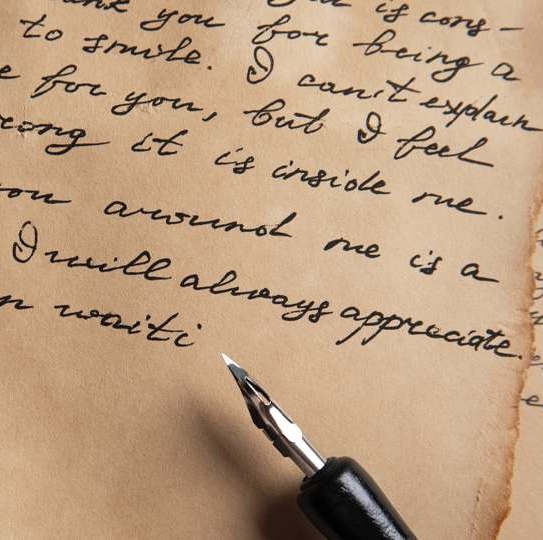 you for is cons-
to smile. you for being a
e for you, I can't explain
rong it is but I feel
ou around inside me.
I will always me is a
n waiti appreciate.